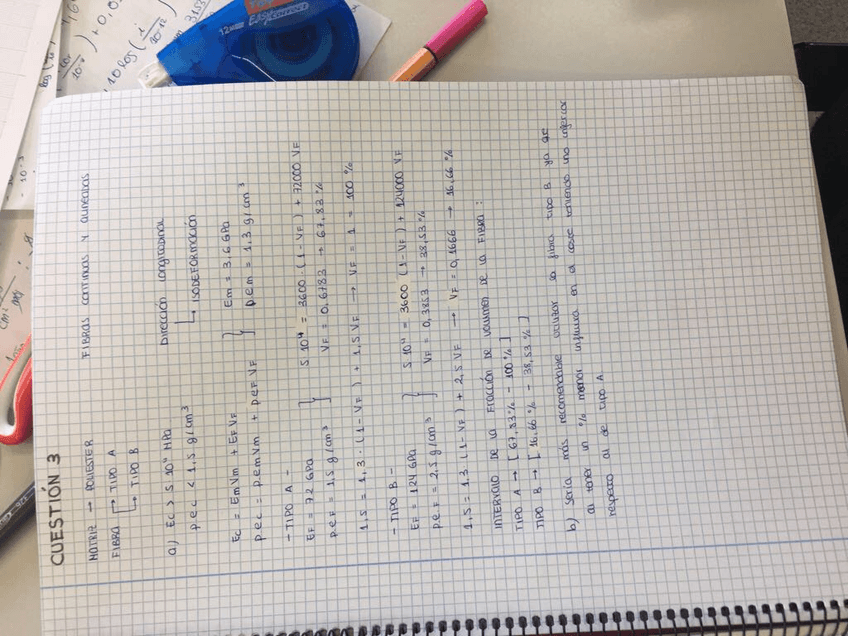 CUESTIÓN 3
MATRIZ → POLIESTER FIBRAS CONTINUAS Y ALINEADAS
FIBRA → TIPO A
→ TIPO B
a) Ec > 5·10⁴ MPa Dirección longitudinal
pec < 1,5 g/cm³ ↳ ISODEFORMACIÓN
Ec = EmVm + EFVF } Em = 3.6 GPa
pec = pemVm + peFVF } pem = 1,3 g/cm³
- TIPO A -
EF = 72 GPa } 5·10⁴ = 3600·(1-VF) + 72000 VF
peF = 1,5 g/cm³ } VF = 0,6783 → 67,83 %
1,5 = 1,3·(1-VF) + 1,5 VF → VF = 1 = 100 %
- TIPO B -
EF = 124 GPa } 5·10⁴ = 3600 (1-VF) + 124000 VF
peF = 2,5 g/cm³ } VF = 0,3853 → 38,53 %
1,5 = 1,3 (1-VF) + 2,5 VF → VF = 0,1666 → 16,66 %
INTERVALO DE LA FRACCIÓN DE VOLUMEN DE LA FIBRA :
TIPO A → [ 67,83 % - 100 % ]
TIPO B → [ 16,66 % - 38,53 % ]
b) Sería más recomendable utilizar la fibra tipo B ya que
al tener un % menor influirá en el coste teniendo uno inferior
respecto al de tipo A